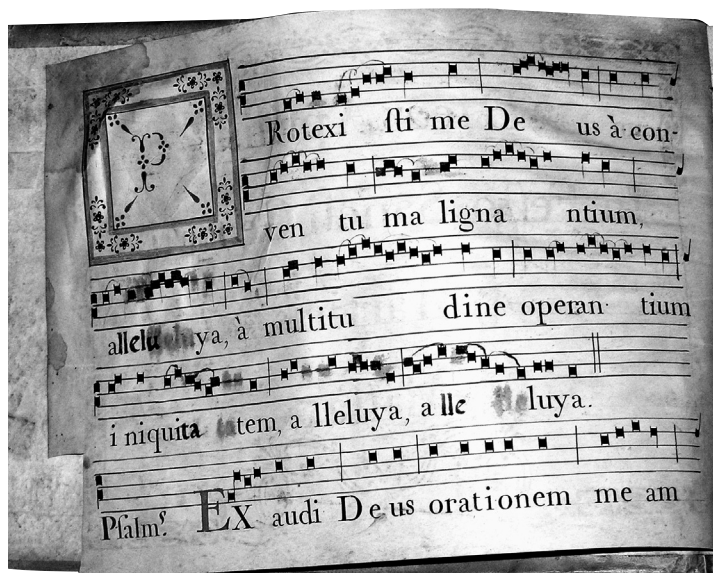 PRotexi sti me De us à con-
ven tu ma ligna ntium,
alleluya, à multitu dine operan tium
i niquita tem, a lleluya, a lle luya.
Psalmº. EX audi Deus orationem me am